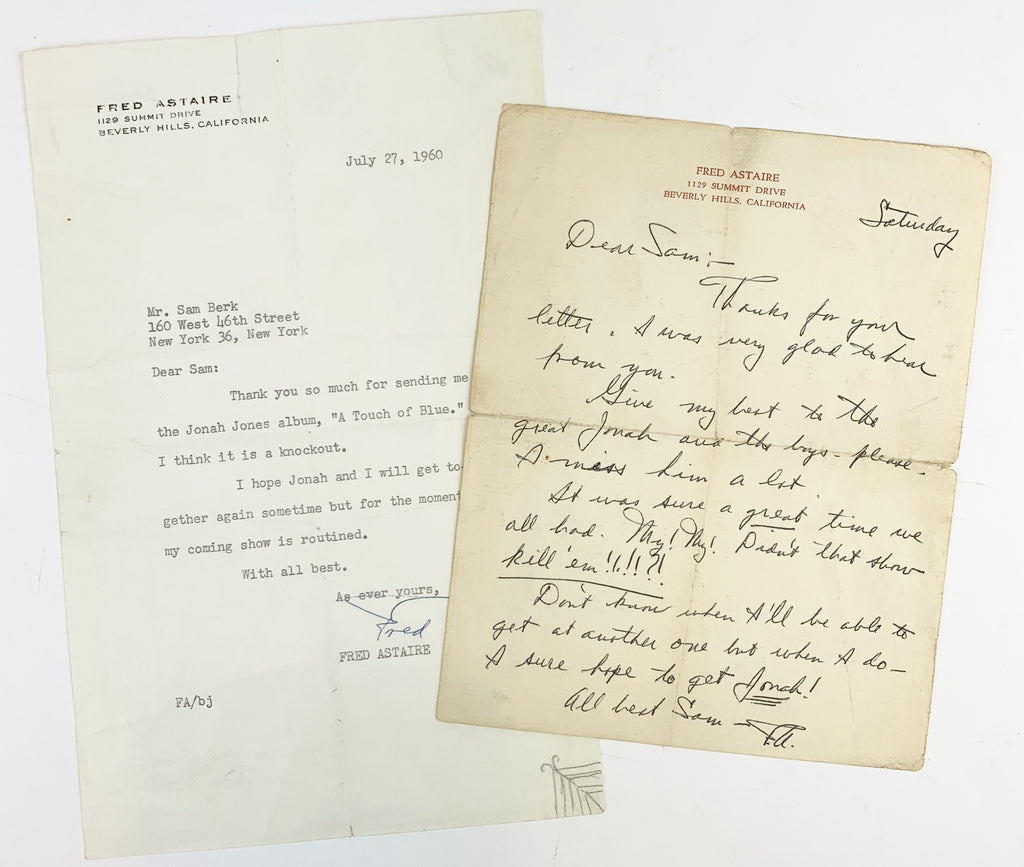 FRED ASTAIRE
1129 SUMMIT DRIVE
BEVERLY HILLS, CALIFORNIA
July 27, 1960
Mr. Sam Berk
160 West 46th Street
New York 36, New York
Dear Sam:
Thank you so much for sending me
the Jonah Jones album, "A Touch of Blue."
I think it is a knockout.
I hope Jonah and I will get to-
gether again sometime but for the moment
my coming show is routined.
With all best.
As ever yours,
Fred
FRED ASTAIRE
FA/bj
FRED ASTAIRE
1129 SUMMIT DRIVE
BEVERLY HILLS, CALIFORNIA
Saturday
Dear Sam:—
Thanks for your
letter. I was very glad to hear
from you.
Give my best to the
great Jonah and the boys - please.
I miss him a lot.
It was sure a great time we
all had. My! My! Didn't that show
kill 'em!!!!?!
Don't know when I'll be able to
get at another one but when I do—
I sure hope to get Jonah!
All best Sam — F.A.